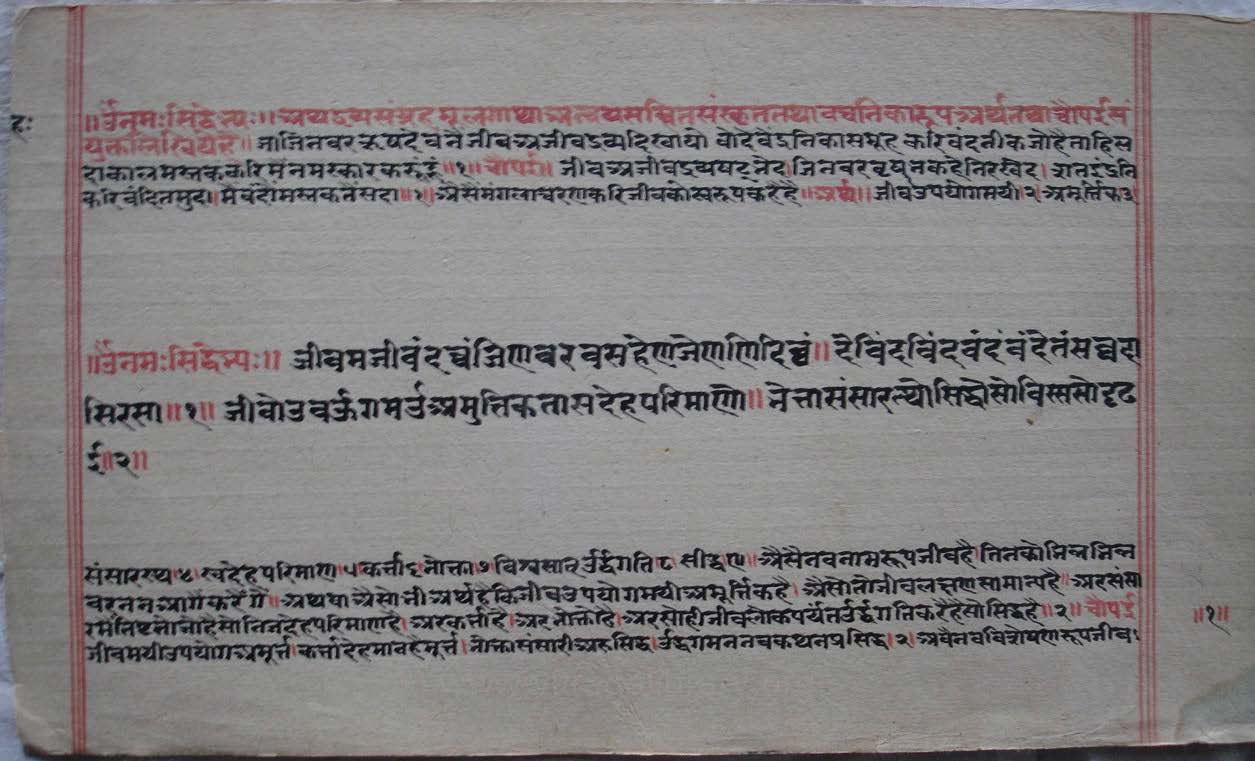 ॥ॐनमःसिद्धेभ्यः॥ अथद्रव्यसंग्रहमूलगाथाअन्वयसचितसंस्कृततथावचनिकारूपअर्थतथाचौपईसं
युक्तलिखियेहै॥ जाजिनवरऋषदेवनैजीवअजीवद्रव्यदिखायो
दाकालमस्तककरिमैनमस्कारकरूंहूं॥१॥चौपई॥ जीवअजीवद्रव्यषटभेद।जिनवरवृषभकहेनिरखेद। शतइंद्रनि
करिवंदितमुदा।मैवंदोमस्तकतैसदा॥१॥अैसैमंगलाचरणकरिजीवकोस्वरूपकहेहै॥अर्थ॥ जीवउपयोगमयी२अमूर्त्तिक३
॥ॐनमःसिद्धेभ्यः॥ जीवमजीवंदव्वंजिणवरवसहेणजेणणिदिठ्ठं॥देविंदविंदवंदंवंदेतंसव्वदा
सिरसा॥१॥ जीवोउवऊगमउअमुत्तिकतासदेहपरिमाणो॥भोत्तासंसारत्थोसिद्धोसोविस्ससोड्ढग
ई॥२॥
संसारस्थ४स्वदेहपरिमाण५कर्त्ता६भोक्ता७विश्वसाउर्द्धगति८सिद्ध९॥अैसैनवनामरूपजीवहै।तिनकोभिन्नभिन्न
वरननआगैकरैंगे॥अथवाअैसाभीअर्थहैकिजीवउपयोगमयीअमूर्त्तिकहै।अैसोतोजीवलक्षणसामान्यहै॥अरसंसा
अरकर्त्ताहै।अरभोक्ताहै।अरसोहीजीवलोकपर्यंतउर्द्धगतिकरेहैसोसिद्धहै॥२॥चौपई
जीवमयीउपयोगअमूर्त्त।कर्त्तादेहमानहैमूर्त्त।भोक्तासंसारीअरुसिद्ध।उर्द्धगमननवकथनप्रसिद्ध।२।अवैनवविशेषणरूपजीव
॥१॥